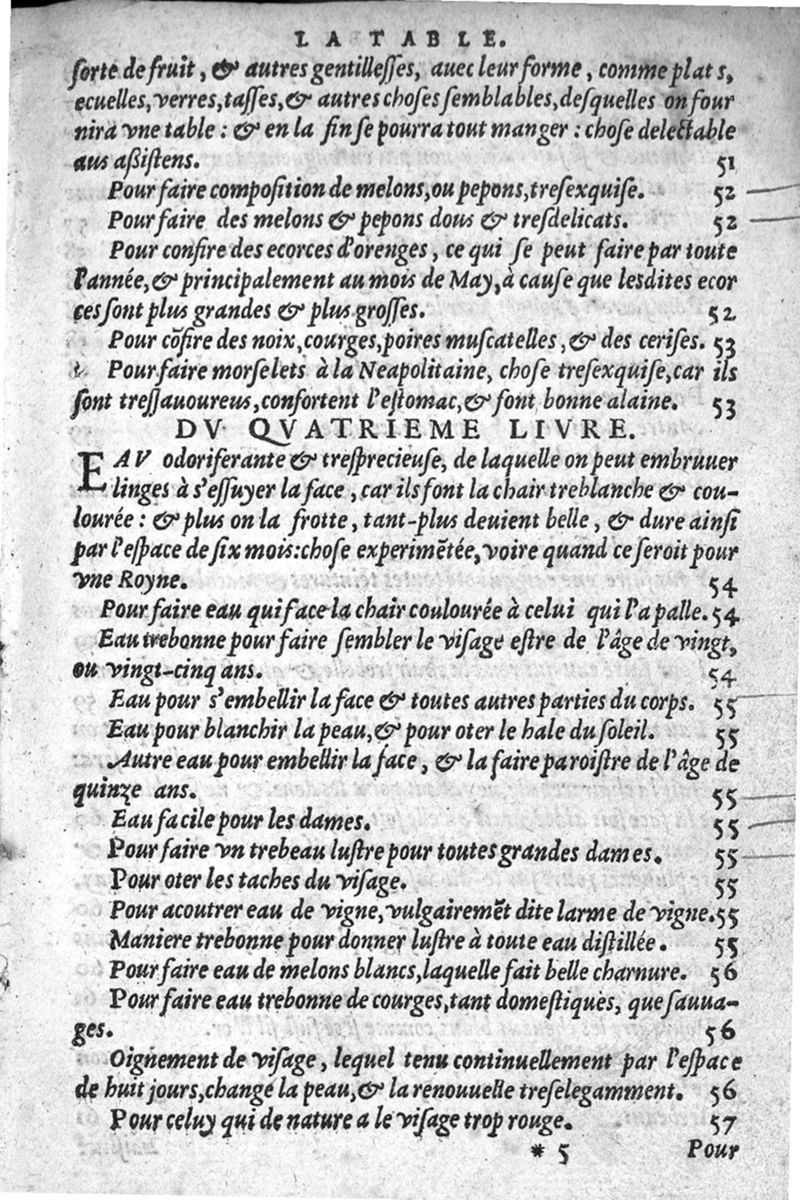 LA TABLE.
ſorte de fruit, & autres gentilleſſes, auec leur forme, comme plats,
ecuelles, verres, taſſes, & autres choſes ſemblables, deſquelles on four
nira vne table : & en la fin ſe pourra tout manger : choſe delectable
aus aßiſtens. 51
Pour faire compoſition de melons, ou pepons, treſexquiſe. 52
Pour faire des melons & pepons dous & treſdelicats. 52
Pour confire des ecorces d'orenges, ce qui ſe peut faire par toute
l'année, & principalement au mois de May, à cauſe que leſdites ecor
ces ſont plus grandes & plus groſſes. 52
Pour cõfire des noix, courges, poires muſcatelles, & des ceriſes. 53
Pour faire morſelets à la Neapolitaine, choſe treſexquiſe, car ils
ſont treſſauoureus, confortent l'eſtomac, & font bonne alaine. 53
DV QVATRIEME LIVRE.
EAV odoriferante & treſprecieuſe, de laquelle on peut embruuer
linges à s'eſſuyer la face, car ils font la chair treblanche & cou-
lourée : & plus on la frotte, tant-plus deuient belle, & dure ainſi
par l'eſpace de ſix mois: choſe experimẽtée, voire quand ce ſeroit pour
vne Royne. 54
Pour faire eau qui face la chair coulourée à celui qui l'a palle. 54
Eau trebonne pour faire ſembler le viſage eſtre de l'âge de vingt,
ou vingt-cinq ans. 54
Eau pour s'embellir la face & toutes autres parties du corps. 55
Eau pour blanchir la peau, & pour oter le hale du ſoleil. 55
Autre eau pour embellir la face, & la faire paroiſtre de l'âge de
quinze ans. 55
Eau facile pour les dames. 55
Pour faire vn trebeau luſtre pour toutes grandes dames. 55
Pour oter les taches du viſage. 55
Pour acoutrer eau de vigne, vulgairemẽt dite larme de vigne. 55
Maniere trebonne pour donner luſtre à toute eau diſtillée. 55
Pour faire eau de melons blancs, laquelle fait belle charnure. 56
Pour faire eau trebonne de courges, tant domeſtiques, que ſauua-
ges. 56
Oignement de viſage, lequel tenu continuellement par l'eſpace
de huit jours, change la peau, & la renouuelle treſelegamment. 56
Pour celuy qui de nature a le viſage trop rouge. 57
* 5 Pour